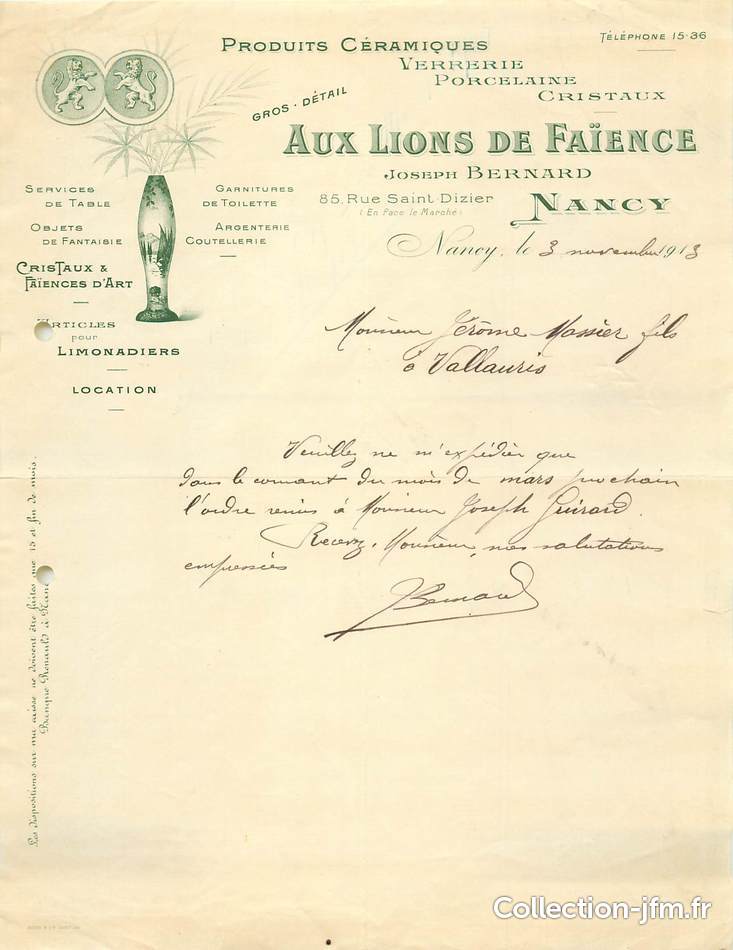 TÉLÉPHONE 15-36
PRODUITS CÉRAMIQUES
VERRERIE
PORCELAINE
CRISTAUX
GROS - DÉTAIL
AUX LIONS DE FAÏENCE
JOSEPH BERNARD
85, Rue Saint Dizier
(En Face le Marché)
NANCY
SERVICES
DE TABLE
OBJETS
DE FANTAISIE
CRISTAUX &
FAÏENCES D'ART
ARTICLES
pour
LIMONADIERS
LOCATION
GARNITURES
DE TOILETTE
ARGENTERIE
COUTELLERIE
Nancy, le 3 novembre 1913
Monsieur Jérôme Massier fils
à Vallauris
Veuillez ne m'expédier que
dans le courant du mois de mars prochain
l'ordre remis à Monsieur Joseph Guirard.
Recevez, Monsieur, mes salutations
empressées
JBernard
Les dispositions sur ma caisse ne doivent être faites que 15 et fin de mois.
Banque Renauld à Nancy
Collection-jfm.fr